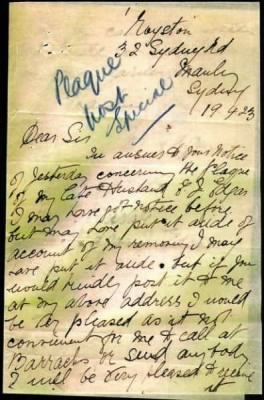 Royston
32 Sydney Rd
Manly
Sydney
19.4.23
Plaque
post
Special
Dear Sir
In answer to your Notice
of Yesterday concerning the Plaque
of my late Husband E J
I may have got notice before
but may have put it aside of
account of my removing I may
have put it aside. but if you
would kindly post it to me
at my above address I would
be very pleased as it not
convenient for me to call at
Barracks or send anybody
I will be very pleased to receive
it